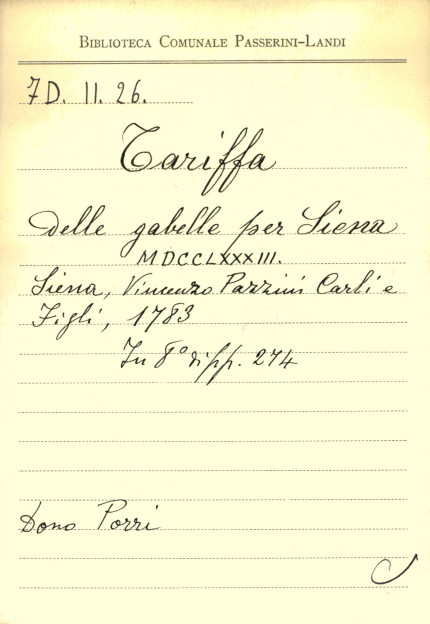 BIBLIOTECA COMUNALE PASSERINI-LANDI
7D. II. 26.
Tariffa
delle gabelle per Siena
MDCCLXXXIII.
Siena, Vincenzo Pazzini Carli e
Figli, 1783
In 8° di pp. 274
Dono Porri